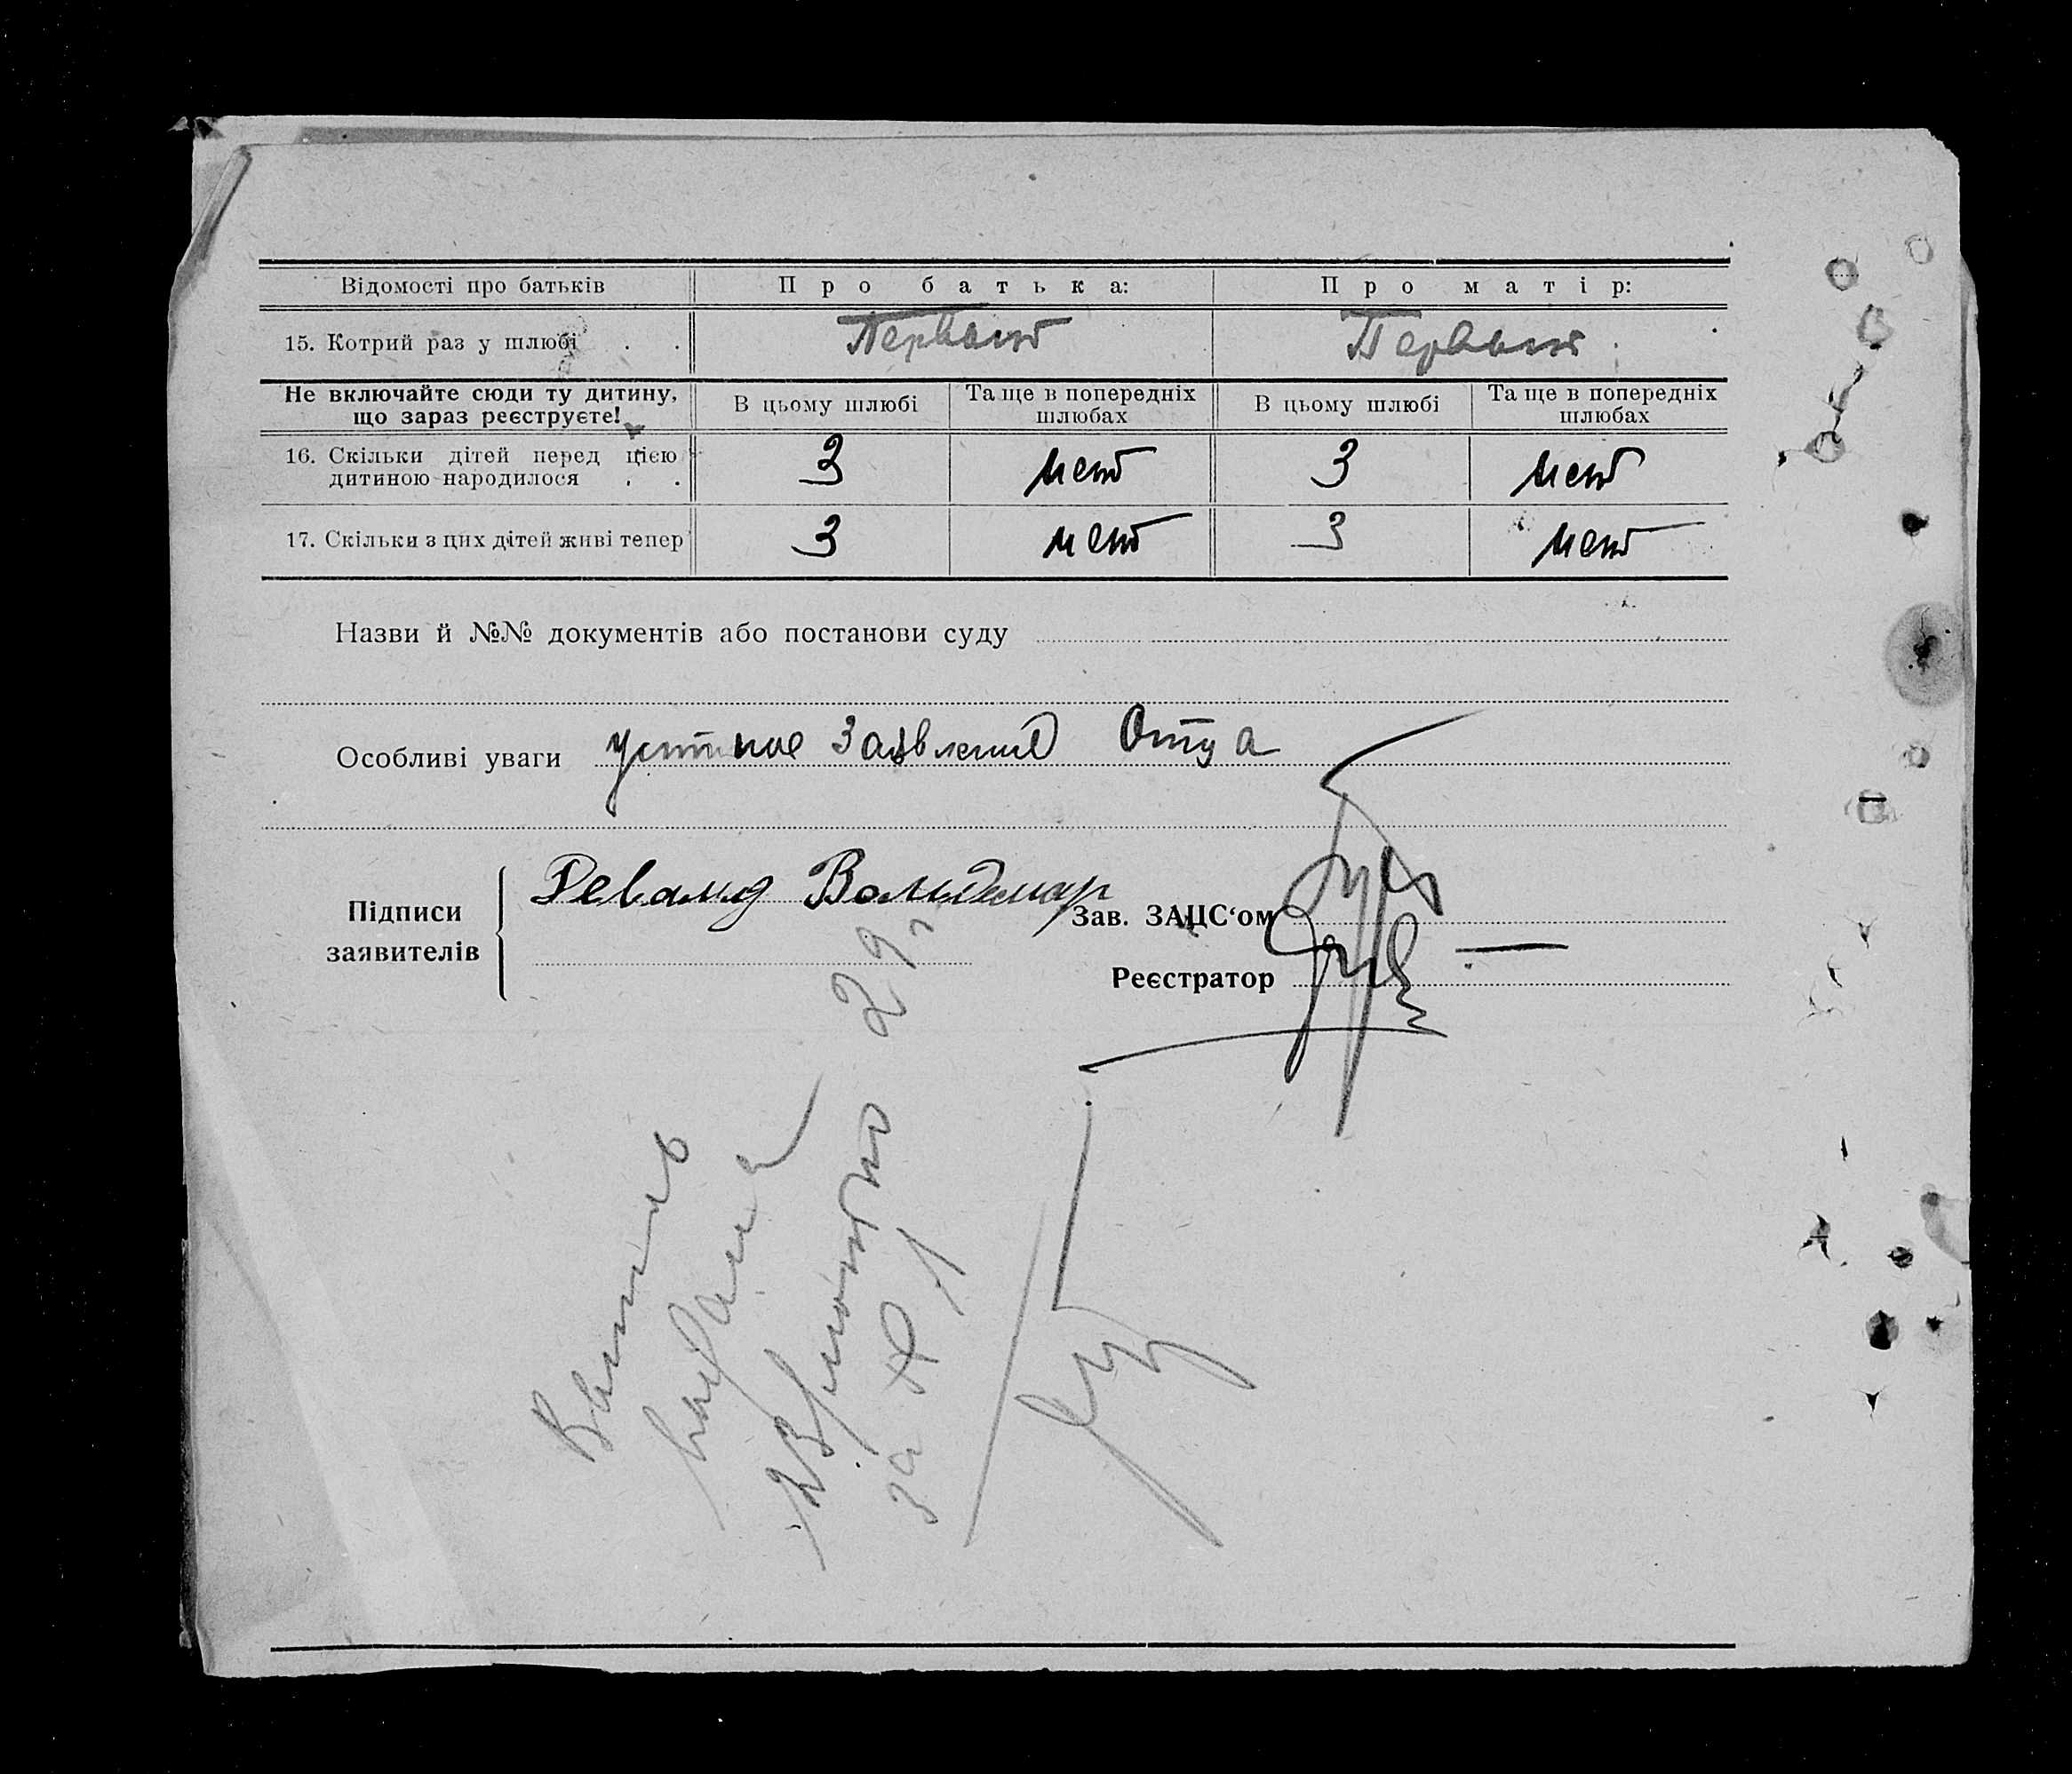 Відомості про батьків Про батька: Про матір:
15. Котрий раз у шлюбі . . Первый Первый
Не включайте сюди ту дитину, що зараз реєструєте! В цьому шлюбі Та ще в попередніх шлюбах В цьому шлюбі Та ще в попередніх шлюбах
16. Скільки дітей перед цією дитиною народилося . . 3 нет 3 нет
17. Скільки з цих дітей живі тепер 3 нет 3 нет
Назви й №№ документів або постанови суду
Особливі уваги устное заявление Отца
Підписи заявителів Вольдемар
Зав. ЗАЦС‘ом
Реєстратор
29
за №